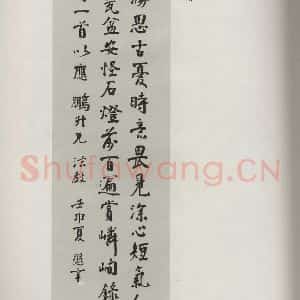 思古憂時意畏見深心短氣
瓦盆安怪石燈前百遍賞嶙峋錄
一首以應 鵬升兄 法教 壬申夏
Shufawang.CN